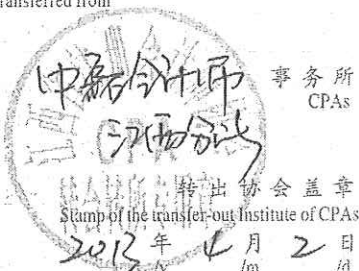 ransferred from
中磊会计师 事务所
CPAs
江西分所
CPA
转出协会盖章
Stamp of the transfer-out Institute of CPAs
2013 年 4 月 2 日
/y /m /d